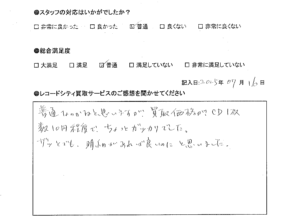 ●スタッフの対応はいかがでしたか？
□非常に良かった □良かった □普通 □良くない □非常に良くない
●総合満足度
□大満足 □満足 □普通 □満足していない □非常に満足していない
記入日 2025年07月16日
●レコードシティ買取サービスのご感想を聞かせてください
普通なのかなと思いますが、買取価格がCD1枚
数10円程度で、ちょっとガッカリでした。
ザッとでも、明細があれば良いのにと思いました。